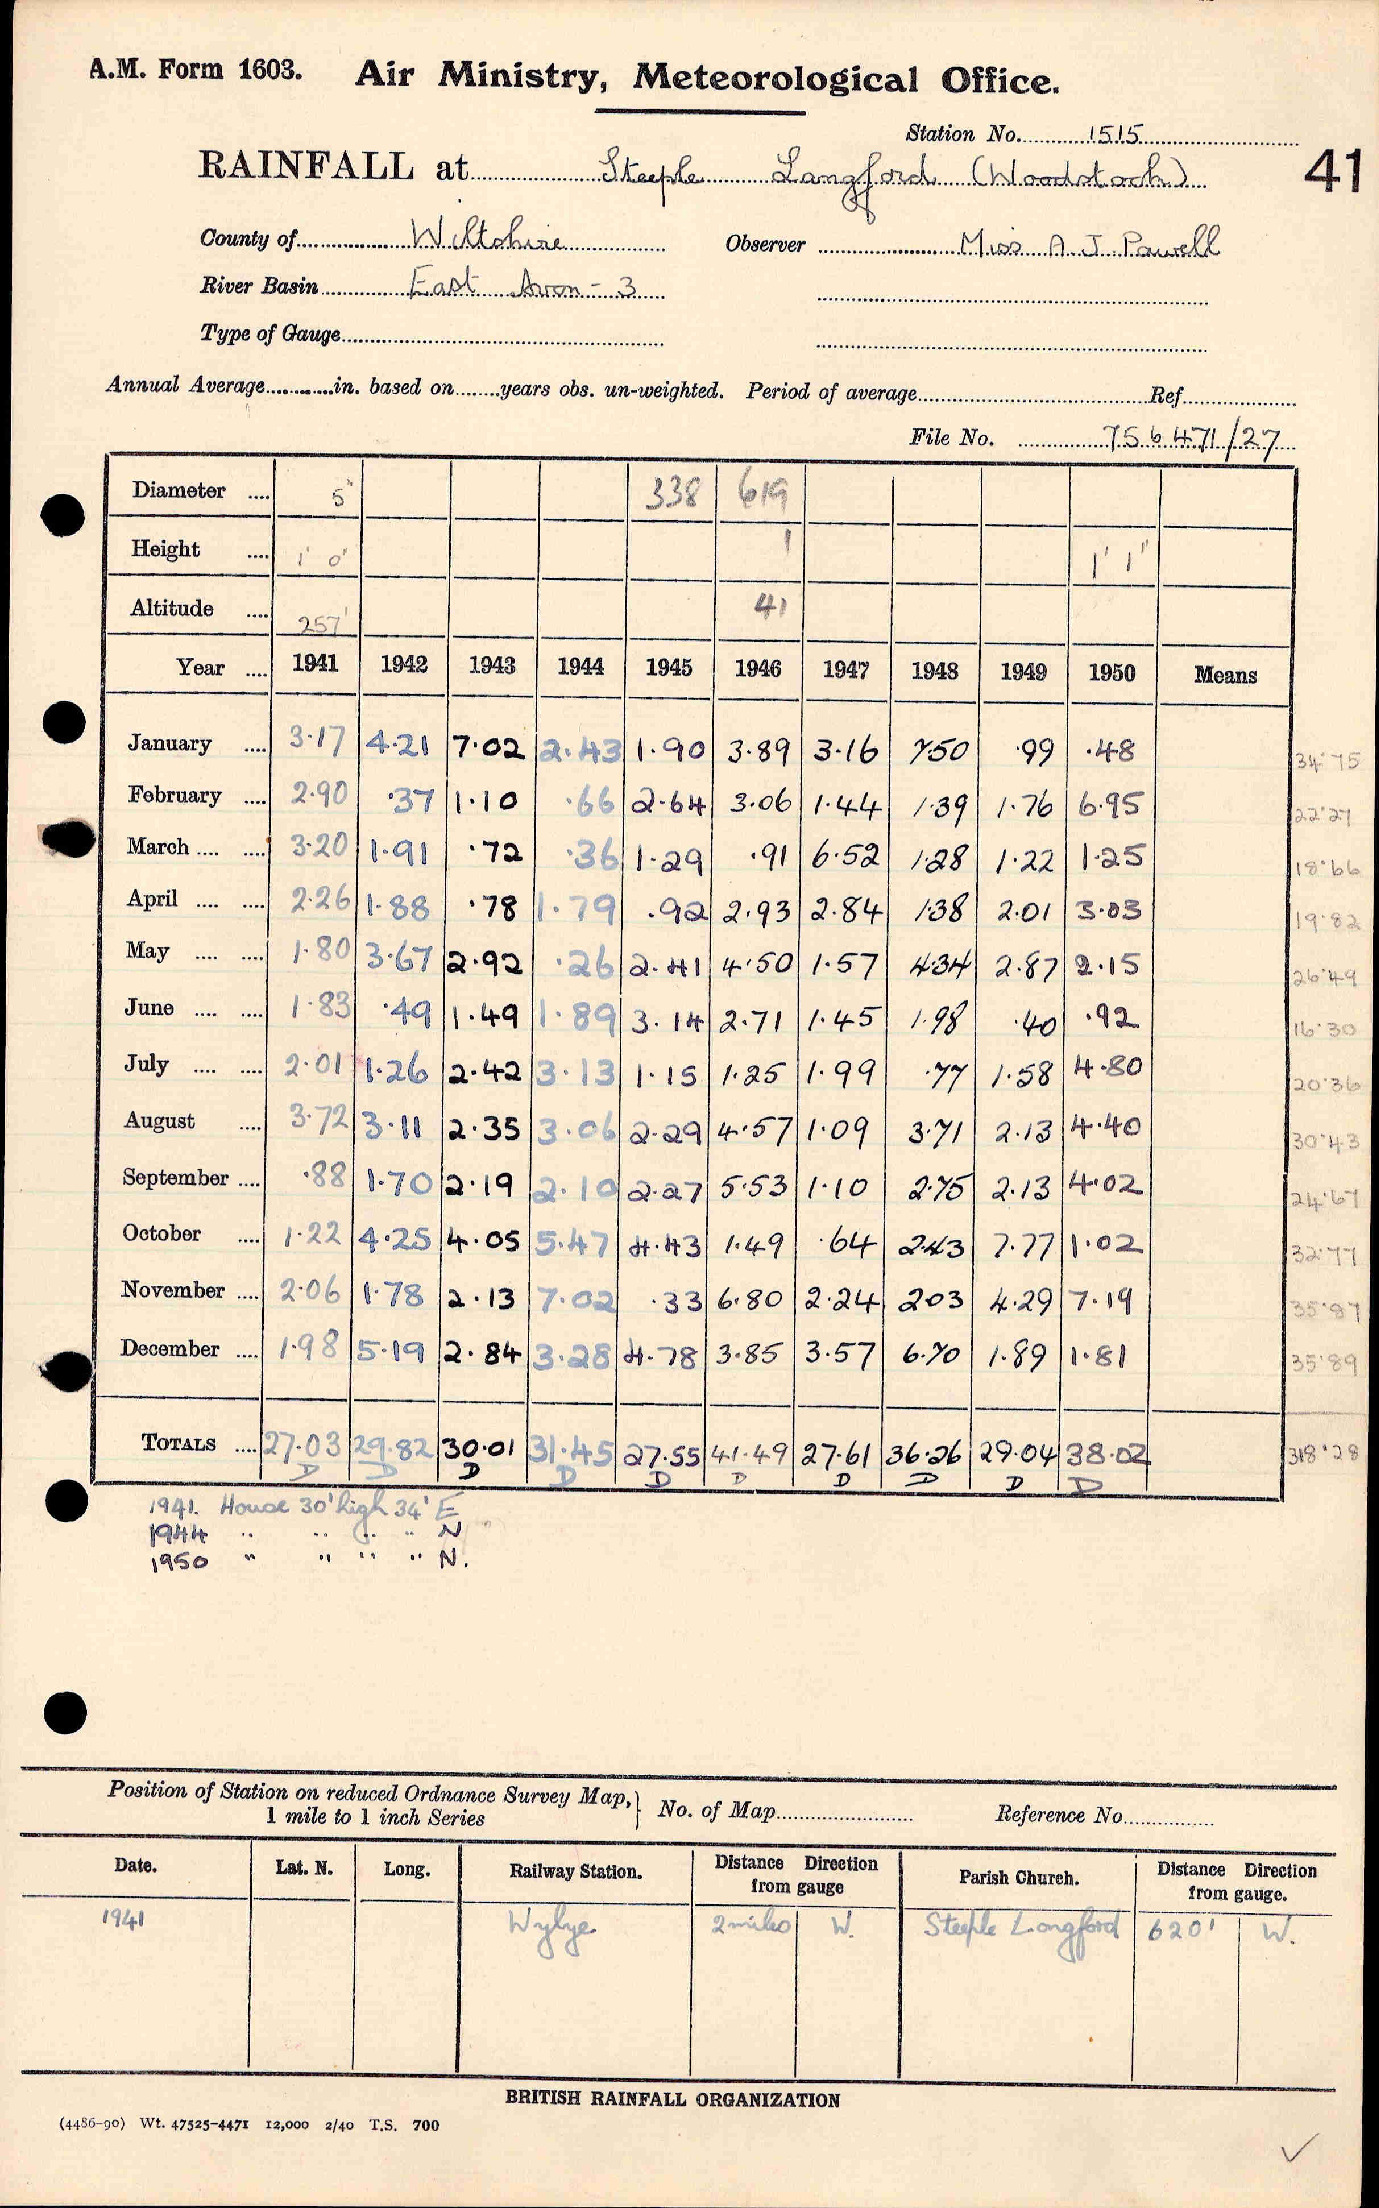 A.M. Form 1603. Air Ministry, Meteorological Office.
Station No. 1515
RAINFALL at Steeple Langford (Woodstock) 41
County of Wiltshire Observer Miss A. J. Powell
River Basin East Avon - 3
Type of Gauge
Annual Average in. based on years obs. un-weighted. Period of average Ref
File No. 756471/27
Diameter 5" 338 619
Height 1' 0" 1 1' 1"
Altitude 257' 41
Year 1941 1942 1943 1944 1945 1946 1947 1948 1949 1950 Means
January 3.17 4.21 7.02 2.43 1.90 3.89 3.16 7.50 .99 .48 34.75
February 2.90 .37 1.10 .66 2.64 3.06 1.44 1.39 1.76 6.95 22.27
March 3.20 1.91 .72 .36 1.29 .91 6.52 1.28 1.22 1.25 18.66
April 2.26 1.88 .78 1.79 .92 2.93 2.84 1.38 2.01 3.03 19.82
May 1.80 3.67 2.92 .26 2.41 4.50 1.57 4.34 2.87 2.15 26.49
June 1.83 .49 1.49 1.89 3.14 2.71 1.45 1.98 .40 .92 16.30
July 2.01 1.26 2.42 3.13 1.15 1.25 1.99 .77 1.58 4.80 20.36
August 3.72 3.11 2.35 3.06 2.29 4.57 1.09 3.71 2.13 4.40 30.43
September .88 1.70 2.19 2.10 2.27 5.53 1.10 2.75 2.13 4.02 24.67
October 1.22 4.25 4.05 5.47 4.43 1.49 .64 2.43 7.77 1.02 32.77
November 2.06 1.78 2.13 7.02 .33 6.80 2.24 2.03 4.29 7.19 35.87
December 1.98 5.19 2.84 3.28 4.78 3.85 3.57 6.70 1.89 1.81 35.89
TOTALS 27.03 29.82 30.01 31.45 27.55 41.49 27.61 36.26 29.04 38.02 318.28
D D D D D D D D D D
1941. House 30' high 34' E
1944 " " " " N
1950 " " " " N.
Position of Station on reduced Ordnance Survey Map, 1 mile to 1 inch Series } No. of Map Reference No.
Date. Lat. N. Long. Railway Station. Distance Direction from gauge Parish Church. Distance Direction from gauge.
1941 Wylye 2 miles W. Steeple Langford 620' W.
BRITISH RAINFALL ORGANIZATION
(4486-90) Wt. 47525-4471 12,000 2/40 T.S. 700